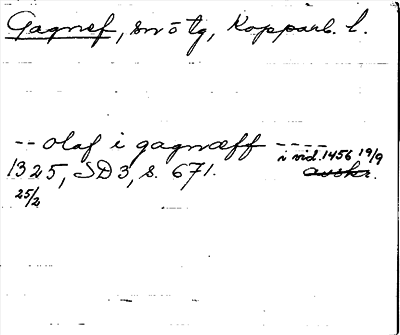 Gagnef, sn o tg, Kopparb. l.
-- olaf i gagnæff ----
i vid. 1456 19/9
1325, SD3, s. 671. avskr.
25/2